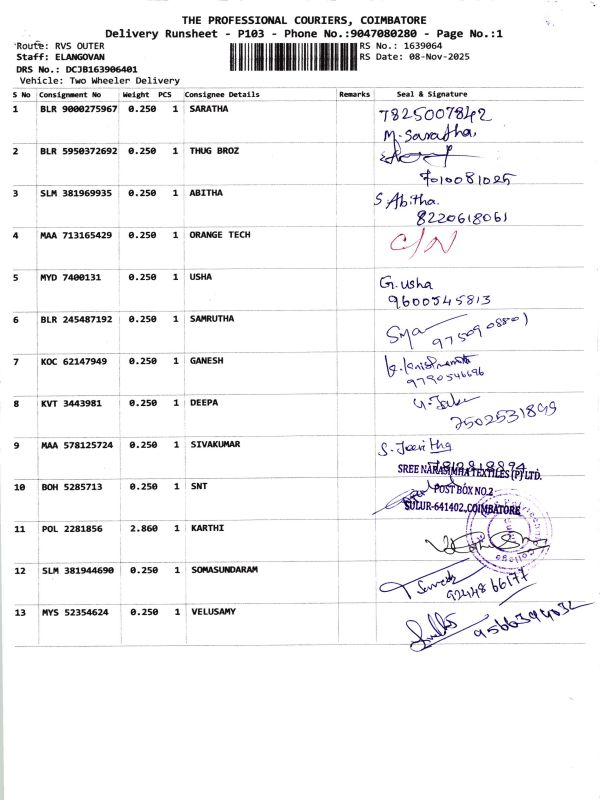 THE PROFESSIONAL COURIERS, COIMBATORE
Delivery Runsheet - P103 - Phone No.:9047080280 - Page No.:1
Route: RVS OUTER RS No.: 1639064
Staff: ELANGOVAN RS Date: 08-Nov-2025
DRS No.: DCJB163906401
Vehicle: Two Wheeler Delivery
S No Consignment No Weight PCS Consignee Details Remarks Seal & Signature
1 BLR 9000275967 0.250 1 SARATHA 7825007842
M. Saratha,
2 BLR 5950372692 0.250 1 THUG BROZ
7010081025
3 SLM 381969935 0.250 1 ABITHA S Abitha.
8220618061
4 MAA 713165429 0.250 1 ORANGE TECH C/N
5 MYD 7400131 0.250 1 USHA G. usha
9600545813
6 BLR 245487192 0.250 1 SAMRUTHA
7 KOC 62147949 0.250 1 GANESH
9790546696
8 KVT 3443981 0.250 1 DEEPA
9 MAA 578125724 0.250 1 SIVAKUMAR
SREE NARASIMHA TEXTILES (P) LTD.
10 BOH 5285713 0.250 1 SNT POST BOX NO.2
SULUR-641402, COIMBATORE
11 POL 2281856 2.860 1 KARTHI
12 SLM 381944690 0.250 1 SOMASUNDARAM
13 MYS 52354624 0.250 1 VELUSAMY